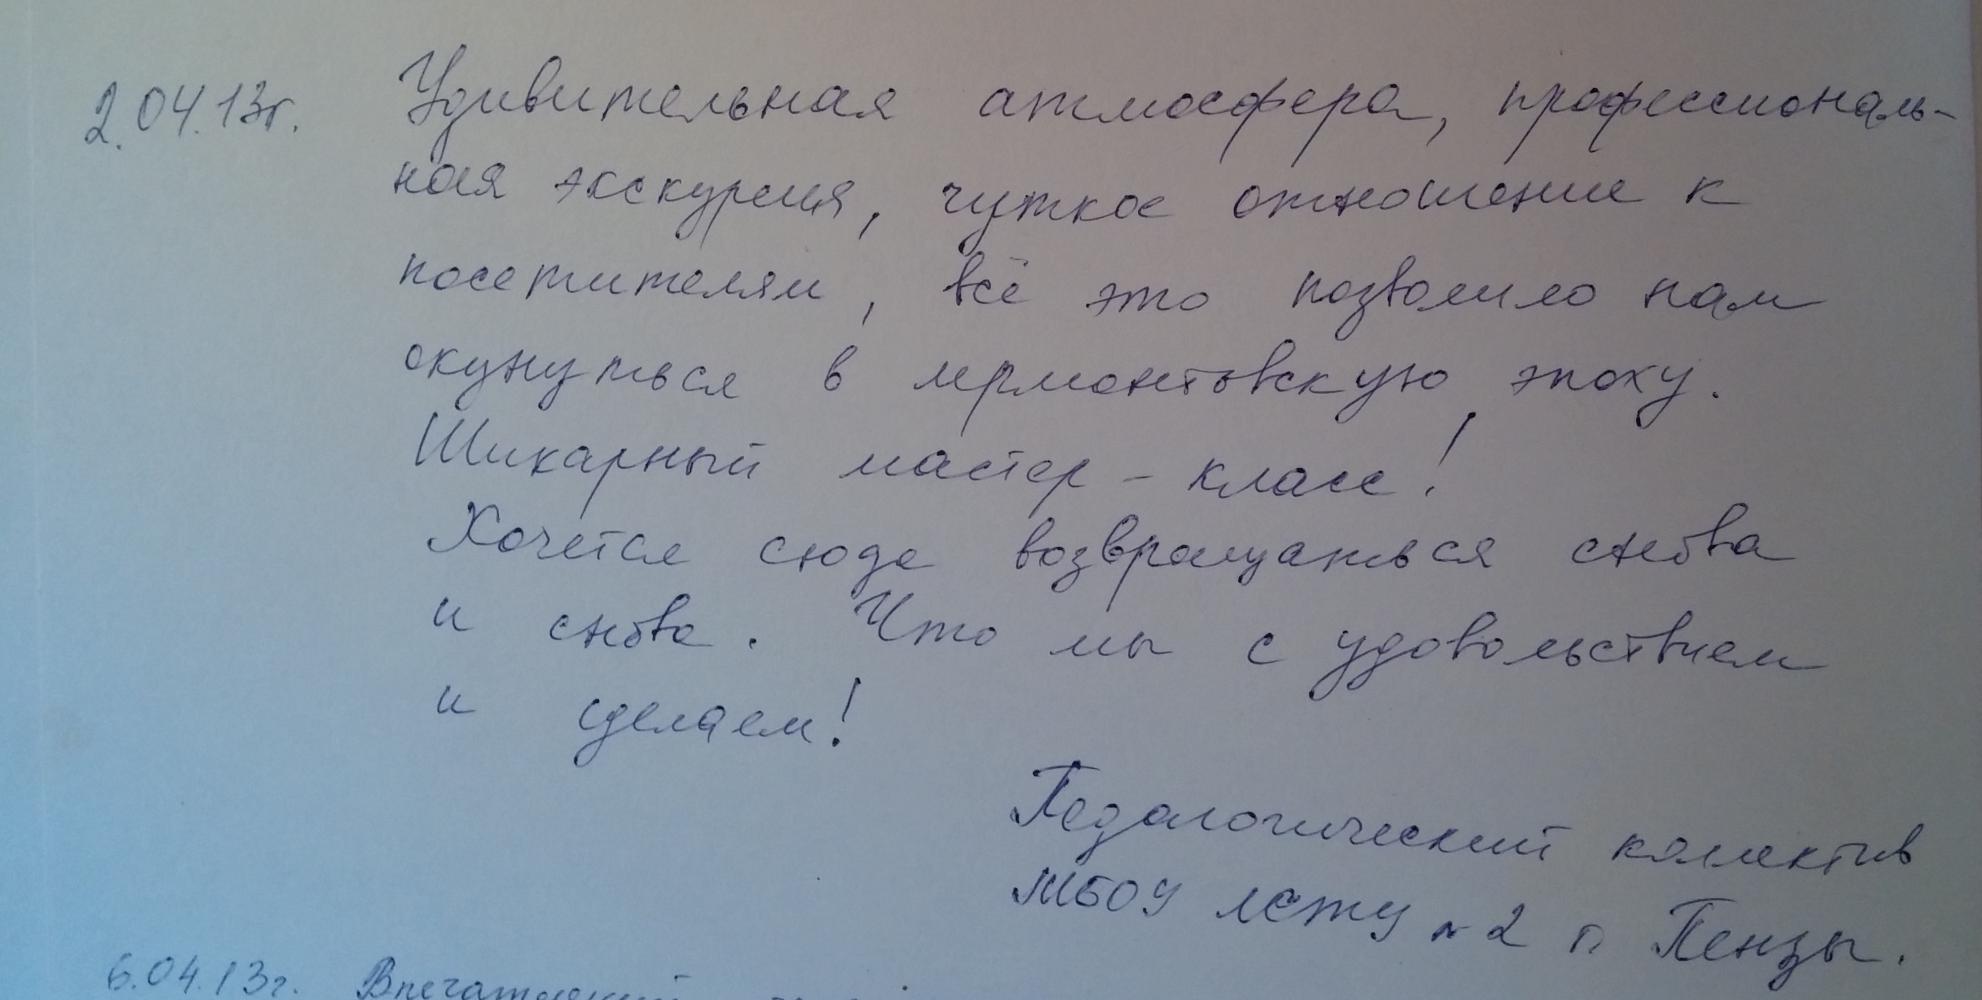 2.04.13г. Удивительная атмосфера, профессиональ-
ная экскурсия, чуткое отношение к
посетителям, всё это позволило нам
окунуться в лермонтовскую эпоху.
Шикарный мастер-класс!
Хочется сюда возвращаться снова
и снова. Что мы с удовольствием
и сделаем!
Педагогический коллектив
МБОУ ЛСТУ №2 г. Пензы.
6.04.13г. Впечатлений